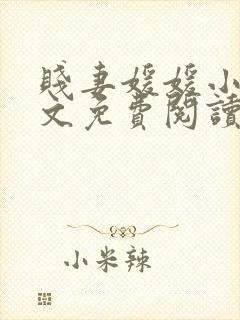 賤妻媛媛小
文免費閱讀
小米辣